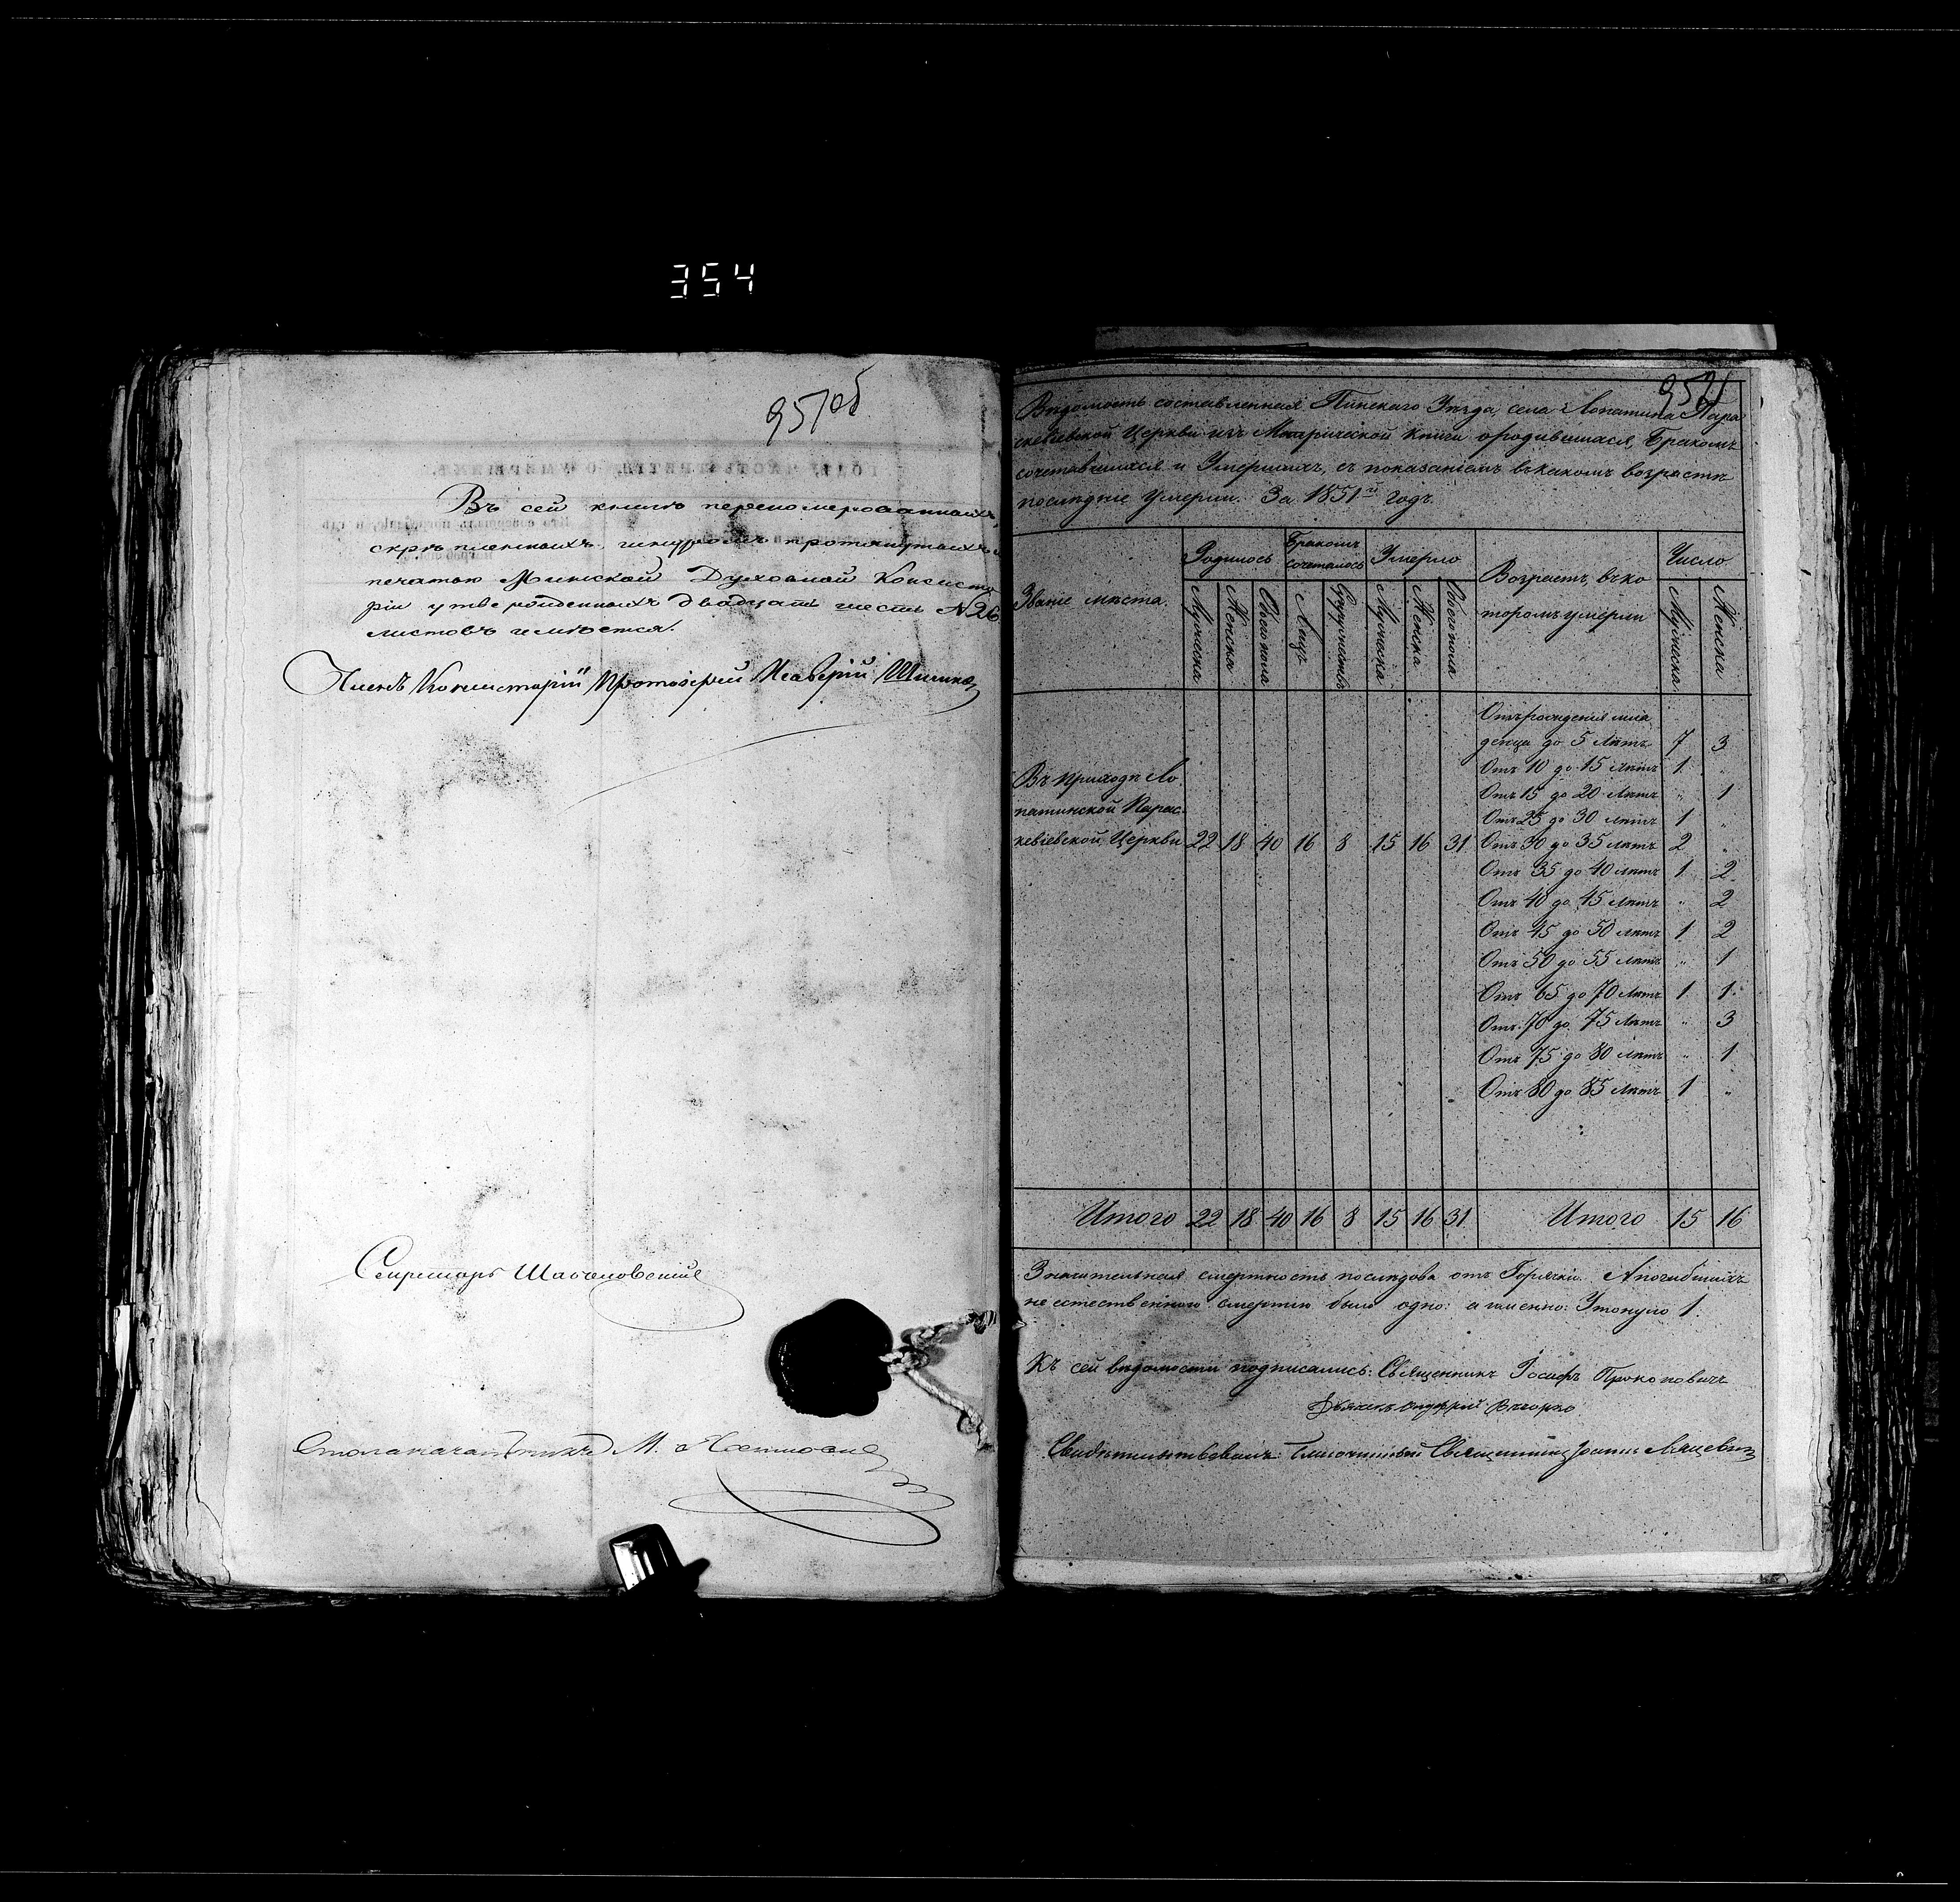 354
951об
Въ сей книгѣ перенумерованныхъ,
скрѣпленныхъ, шнуромъ протянутыхъ и
печатью Минской Духовной Консисто
ріи утвержденныхъ двадцать шесть № 26
листовъ имѣется.
Членъ Консисторіи Протоіерей
Секретарь
Столоначальникъ М.
952
Вѣдомость составленная Пинскаго Уѣзда, села Лопатина Пара
скевіевской Церкви изъ Метрической книги о родившихся, Бракомъ
сочетавшихся и Умершихъ, съ показаніемъ въ какомъ возрастѣ
послѣдніе умерли. За 1851й Годъ.
Званіе мѣста. Родилось Бракомъ сочеталось Умерло Возрастъ, въ ко Число
торомъ умерли
Мужеска Женска Обоего пола Лицъ Супружествъ Мужеска Женска Обоего пола Мужеска Женска
Отъ рожденія мла
денца до 5 лѣтъ 7 3
Отъ 10 до 15 лѣтъ 1 "
Отъ 15 до 20 лѣтъ " 1
Отъ 25 до 30 лѣтъ 1 "
Въ приходѣ Ло
патинской Парас-
кевіевской Церкви 22 18 40 16 8 15 16 31 Отъ 30 до 35 лѣтъ 2 "
Отъ 35 до 40 лѣтъ 1 2
Отъ 40 до 45 лѣтъ " 2
Отъ 45 до 50 лѣтъ 1 2
Отъ 50 до 55 лѣтъ " 1
Отъ 65 до 70 лѣтъ 1 1
Отъ 70 до 75 лѣтъ " 3
Отъ 75 до 80 лѣтъ " 1
Отъ 80 до 85 лѣтъ 1 "
Итого 22 18 40 16 8 15 16 31 Итого 15 16
Значительная смертность послѣдова отъ Горячки. А погибшихъ
не естественною смертію было одно: а именно: Утонуло 1.
Къ сей вѣдомости подписались: Священникъ Іосифъ Прокоповичъ
Дьячекъ
Свидѣтельствовалъ Благочинный Священникъ Іоаннъ